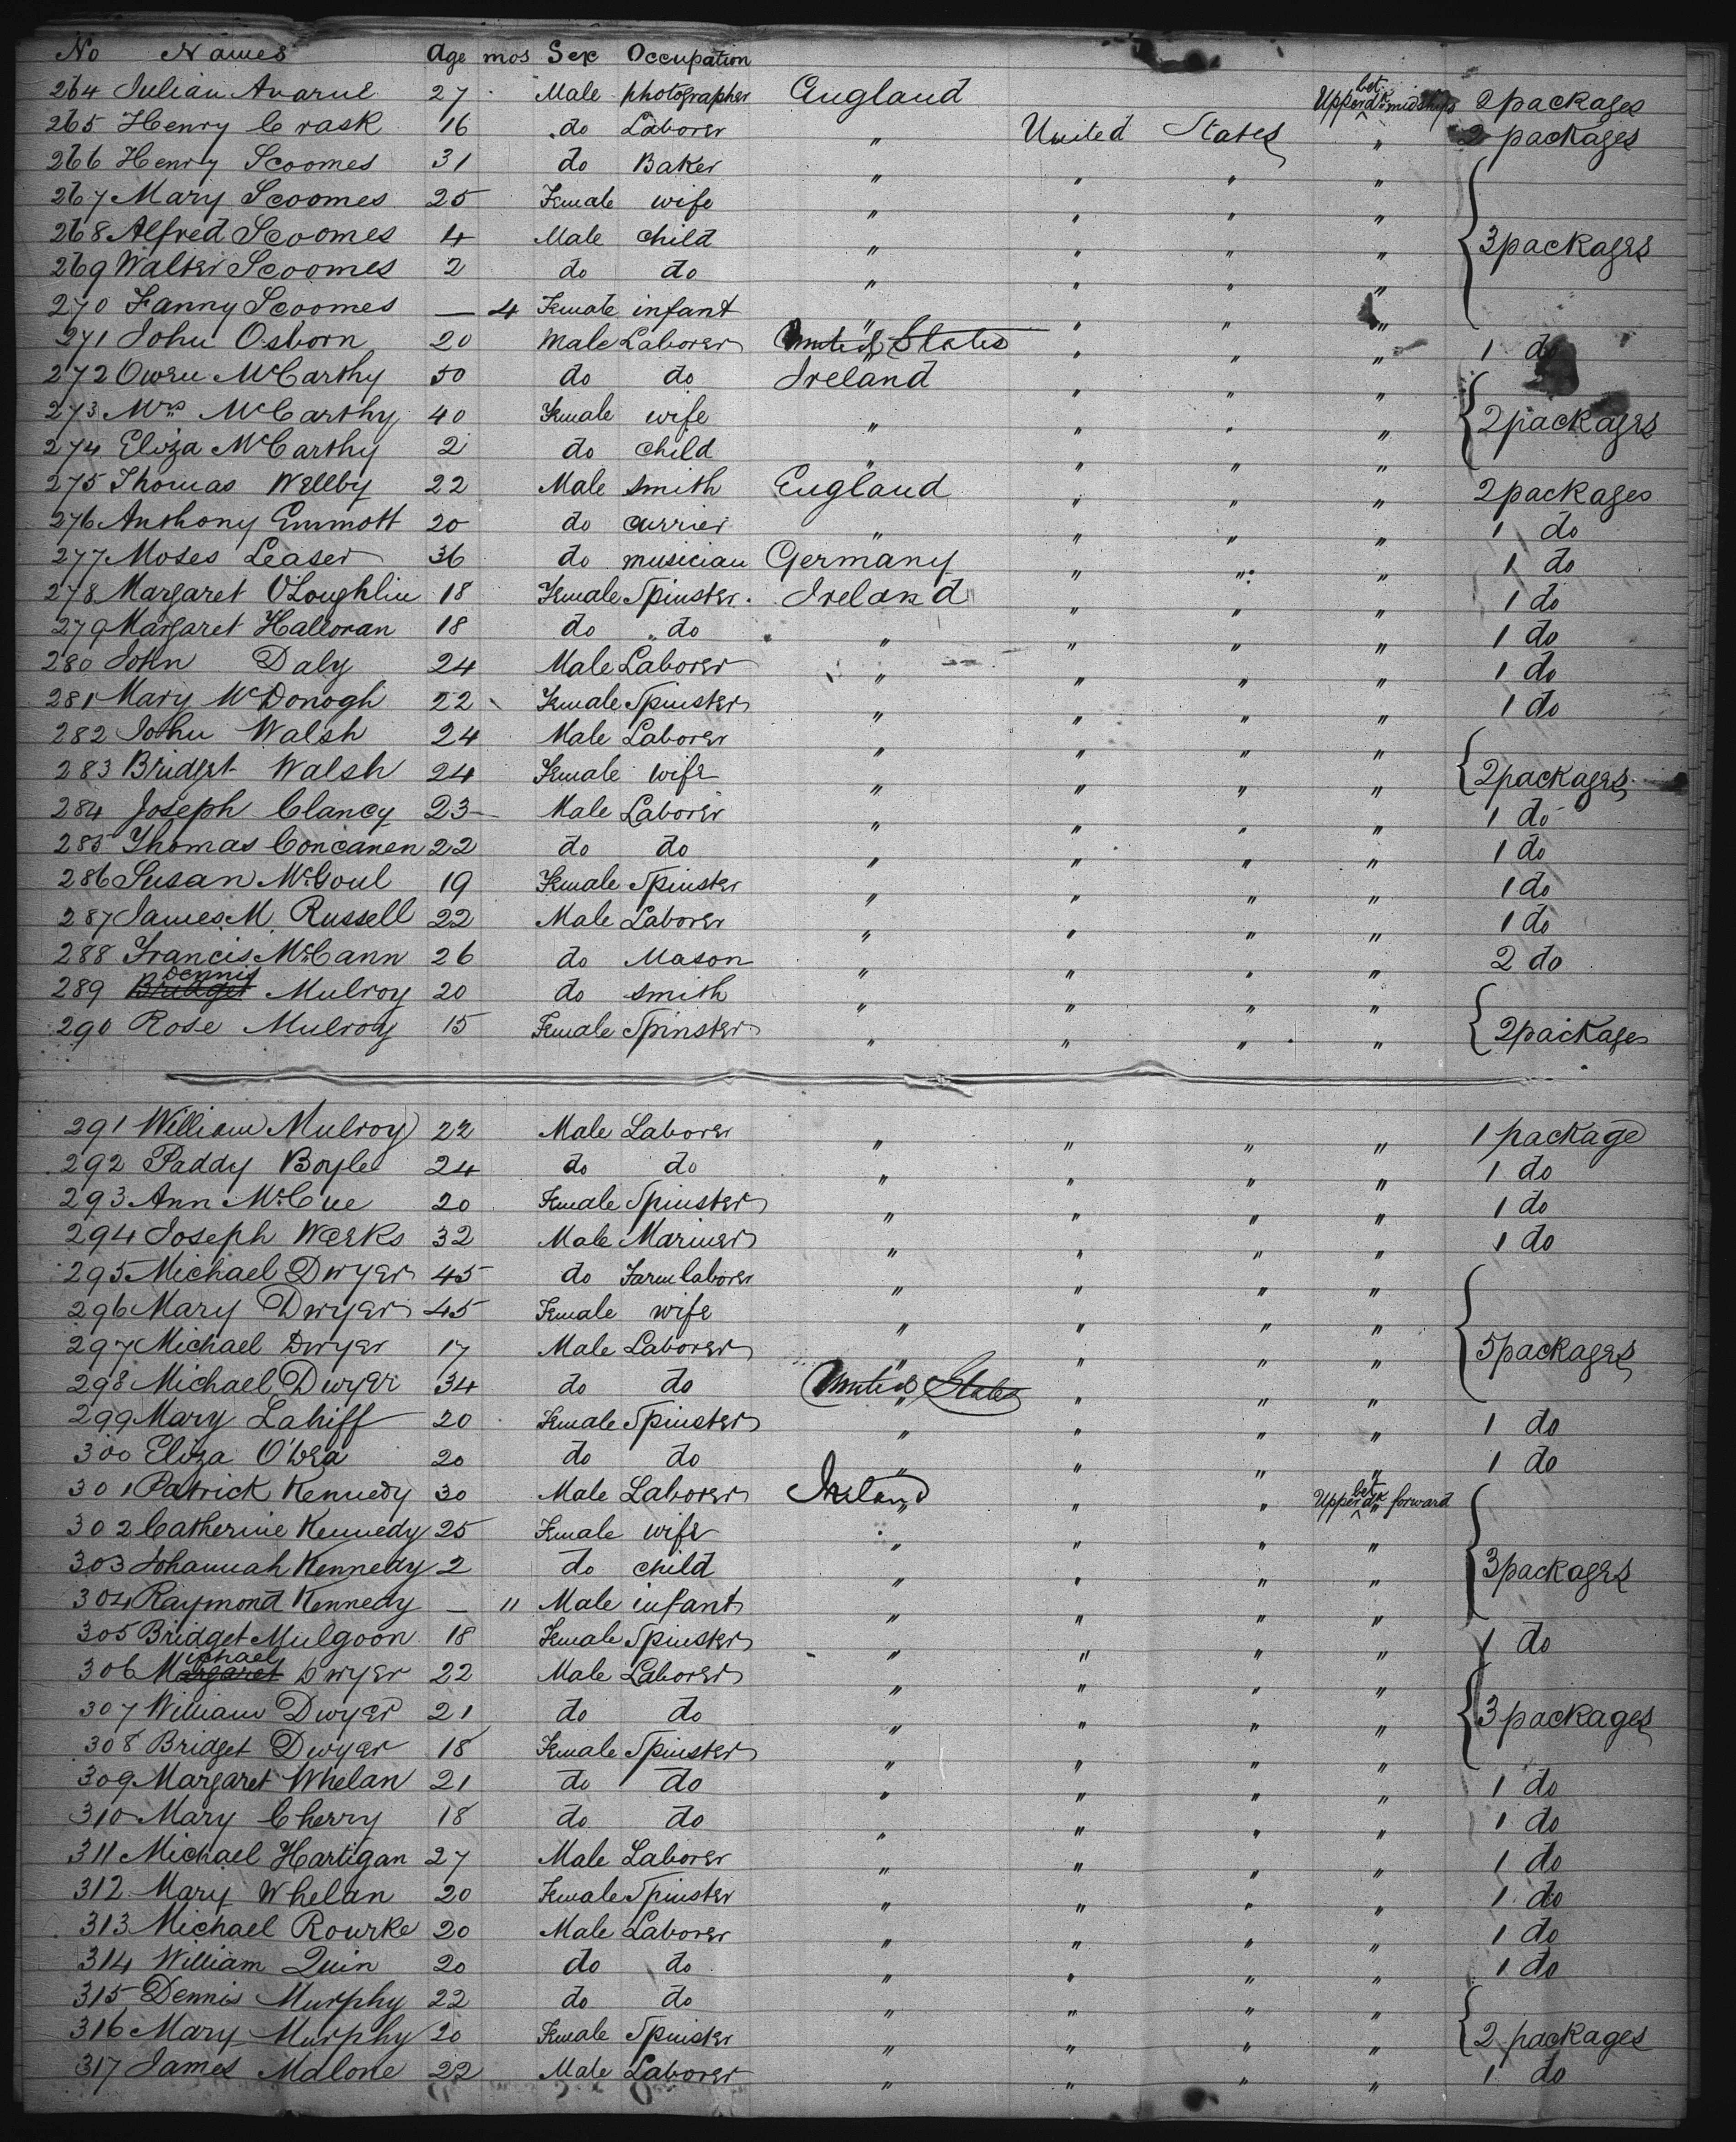 No Names Age mos Sex Occupation
264 Julian Avarne 27 Male photographer England Upper bet dk midships 2 packages
265 Henry Crask 16 do Laborer " United States " 2 packages
266 Henry Scoomes 31 do Baker " " " "
267 Mary Scoomes 25 Female wife " " " "
268 Alfred Scoomes 4 Male child " " " " 3 packages
269 Walter Scoomes 2 do do " " " "
270 Fanny Scoomes — 4 Female infant " " " "
271 John Osborn 20 Male Laborer United States " " " 1 do
272 Owen McCarthy 50 do do Ireland " " "
273 Mrs McCarthy 40 Female wife " " " " 2 packages
274 Eliza McCarthy 2 do child " " " "
275 Thomas Wellby 22 Male smith England " " " 2 packages
276 Anthony Emmott 20 do currier " " " " 1 do
277 Moses Leaser 36 do musician Germany " " " 1 do
278 Margaret O'Loughlin 18 Female Spinster Ireland " " " 1 do
279 Margaret Halloran 18 do do " " " " 1 do
280 John Daly 24 Male Laborer " " " " 1 do
281 Mary McDonogh 22 Female Spinster " " " " 1 do
282 John Walsh 24 Male Laborer " " " "
283 Bridget Walsh 24 Female wife " " " " 2 packages
284 Joseph Clancy 23 Male Laborer " " " " 1 do
285 Thomas Concanen 22 do do " " " " 1 do
286 Susan McGoul 19 Female Spinster " " " " 1 do
287 James M. Russell 22 Male Laborer " " " " 1 do
288 Francis McCann 26 do Mason " " " " 2 do
289 Bridget Dennis Mulroy 20 do smith " " " "
290 Rose Mulroy 15 Female Spinster " " " " 2 packages
291 William Mulroy 22 Male Laborer " " " " 1 package
292 Paddy Boyle 24 do do " " " " 1 do
293 Ann McCue 20 Female Spinster " " " " 1 do
294 Joseph Weeks 32 Male Mariner " " " " 1 do
295 Michael Dwyer 45 do Farm laborer " " " "
296 Mary Dwyer 45 Female wife " " " "
297 Michael Dwyer 17 Male Laborer " " " " 5 packages
298 Michael Dwyer 34 do do United States " " " "
299 Mary Lahiff 20 Female Spinster " " " " 1 do
300 Eliza O'Dea 20 do do " " " " 1 do
301 Patrick Kennedy 30 Male Laborer Ireland " " " Upper bet dk forward
302 Catherine Kennedy 25 Female wife " " " "
303 Johannah Kennedy 2 do child " " " " 3 packages
304 Raymond Kennedy — 11 Male infant " " " "
305 Bridget Mulgoon 18 Female Spinster " " " " 1 do
306 Margaret ichael Dwyer 22 Male Laborer " " " "
307 William Dwyer 21 do do " " " " 3 packages
308 Bridget Dwyer 18 Female Spinster " " " "
309 Margaret Whelan 21 do do " " " " 1 do
310 Mary Cherry 18 do do " " " " 1 do
311 Michael Hartigan 27 Male Laborer " " " " 1 do
312 Mary Whelan 20 Female Spinster " " " " 1 do
313 Michael Rourke 20 Male Laborer " " " " 1 do
314 William Quin 20 do do " " " " 1 do
315 Dennis Murphy 22 do do " " " "
316 Mary Murphy 20 Female Spinster " " " " 2 packages
317 James Malone 22 Male Laborer " " " " 1 do